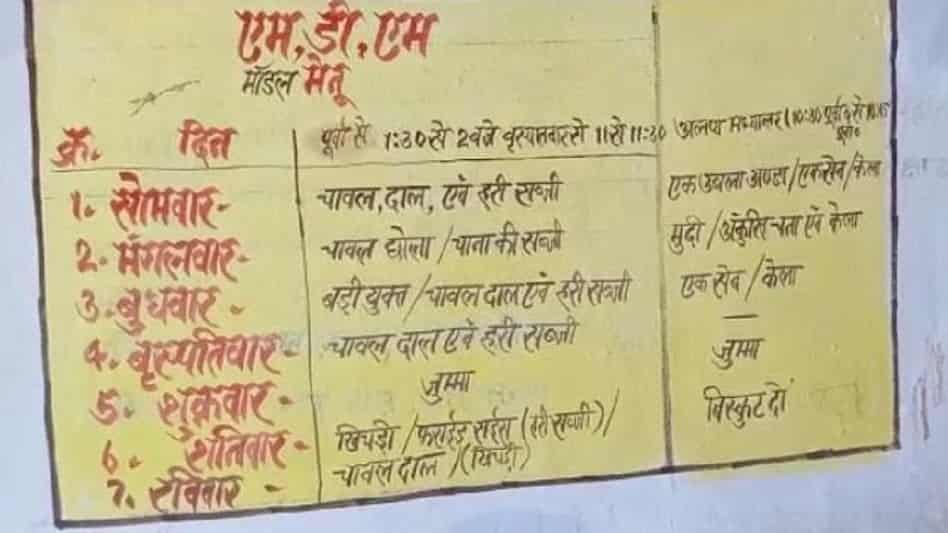 एम.डी.एम
मॉडल मेनू
क्रॅ. दिन पूर्वा से 1:30 से 2 बजे बृहस्पतवार से 11 से 11:30 10:30
1. सोमवार - चावल, दाल, एवं हरी सब्जी एक उबला अण्डा / एक सेव / केला
2. मंगलवार - चावल छोला / चाना की सब्जी मुढ़ी / अंकुरित चना एवं केला
3. बुधवार - बड़ी युक्त / चावल दाल एवं हरी सब्जी एक सेव / केला
4. बृस्पतिवार - चावल, दाल एवं हरी सब्जी —
5. शुक्रवार - जुम्मा जुम्मा
6. शनिवार - खिचड़ी / फराईड राईस (हरी सब्जी) / बिस्कुट दो
7. रविवार - चावल दाल / (खिचड़ी)